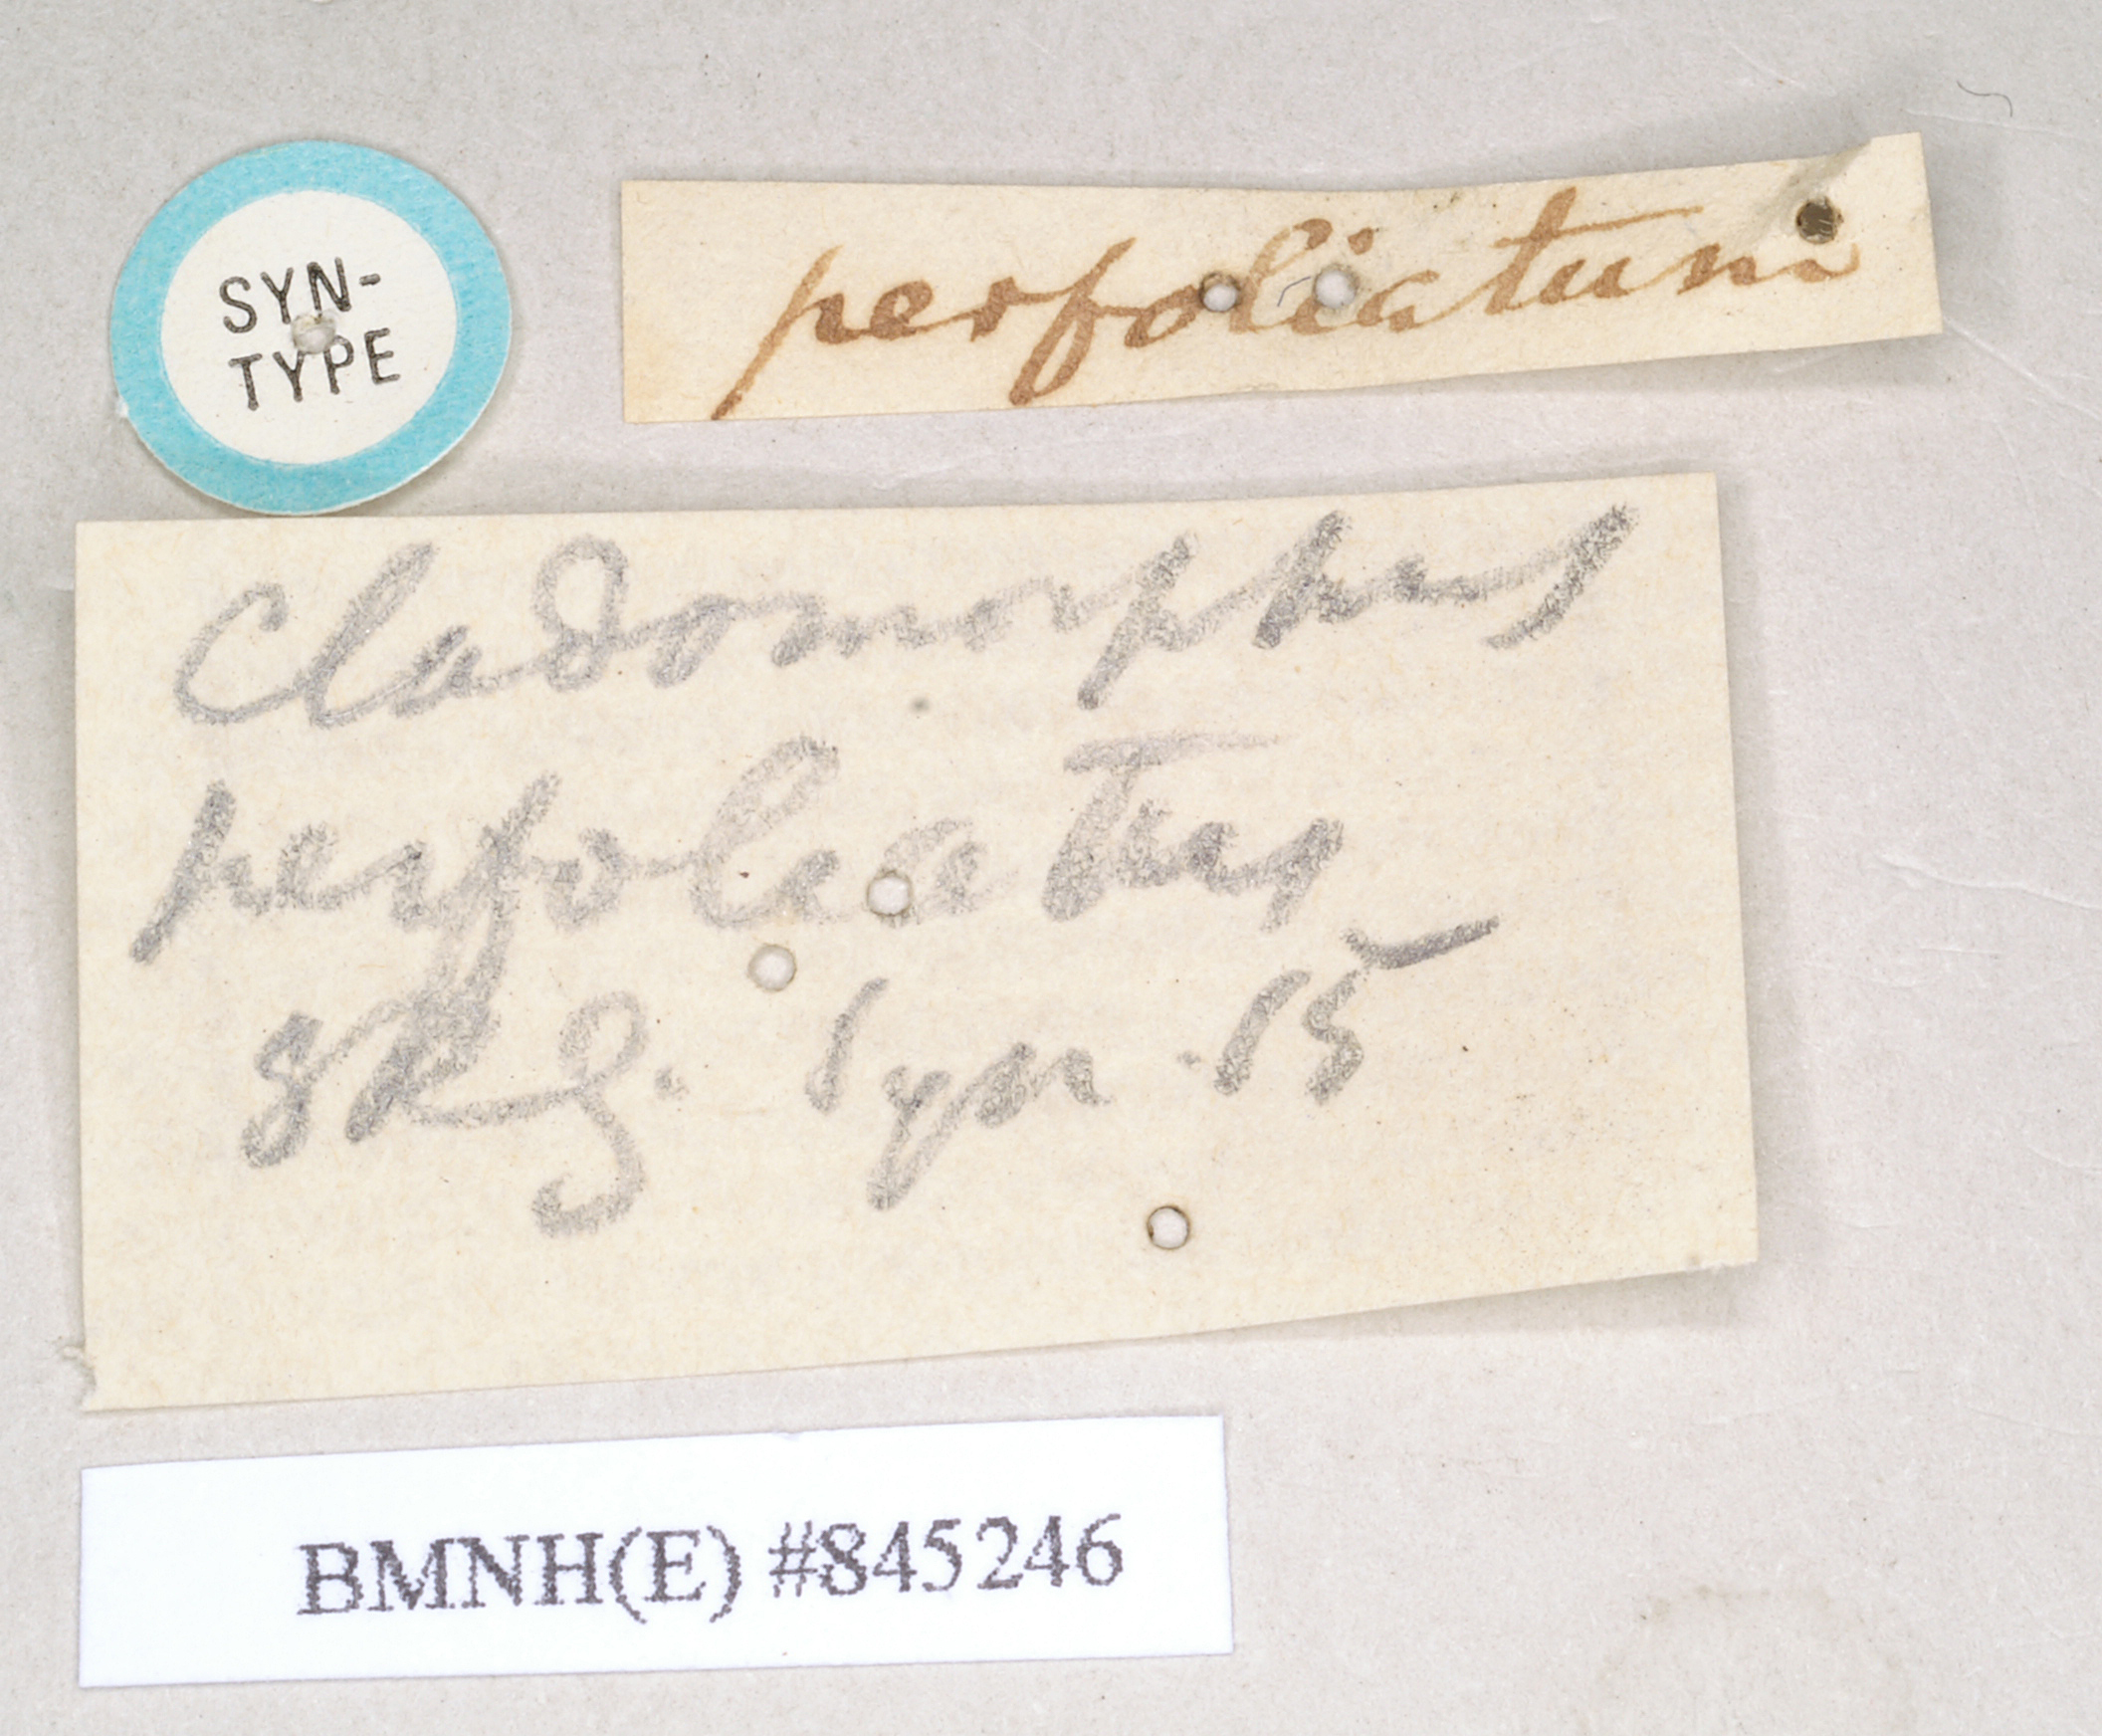 SYN-
TYPE
perfoliatum
Cladomorphus
perfoliatus
GRG. Syn. 15
BMNH(E) #845246